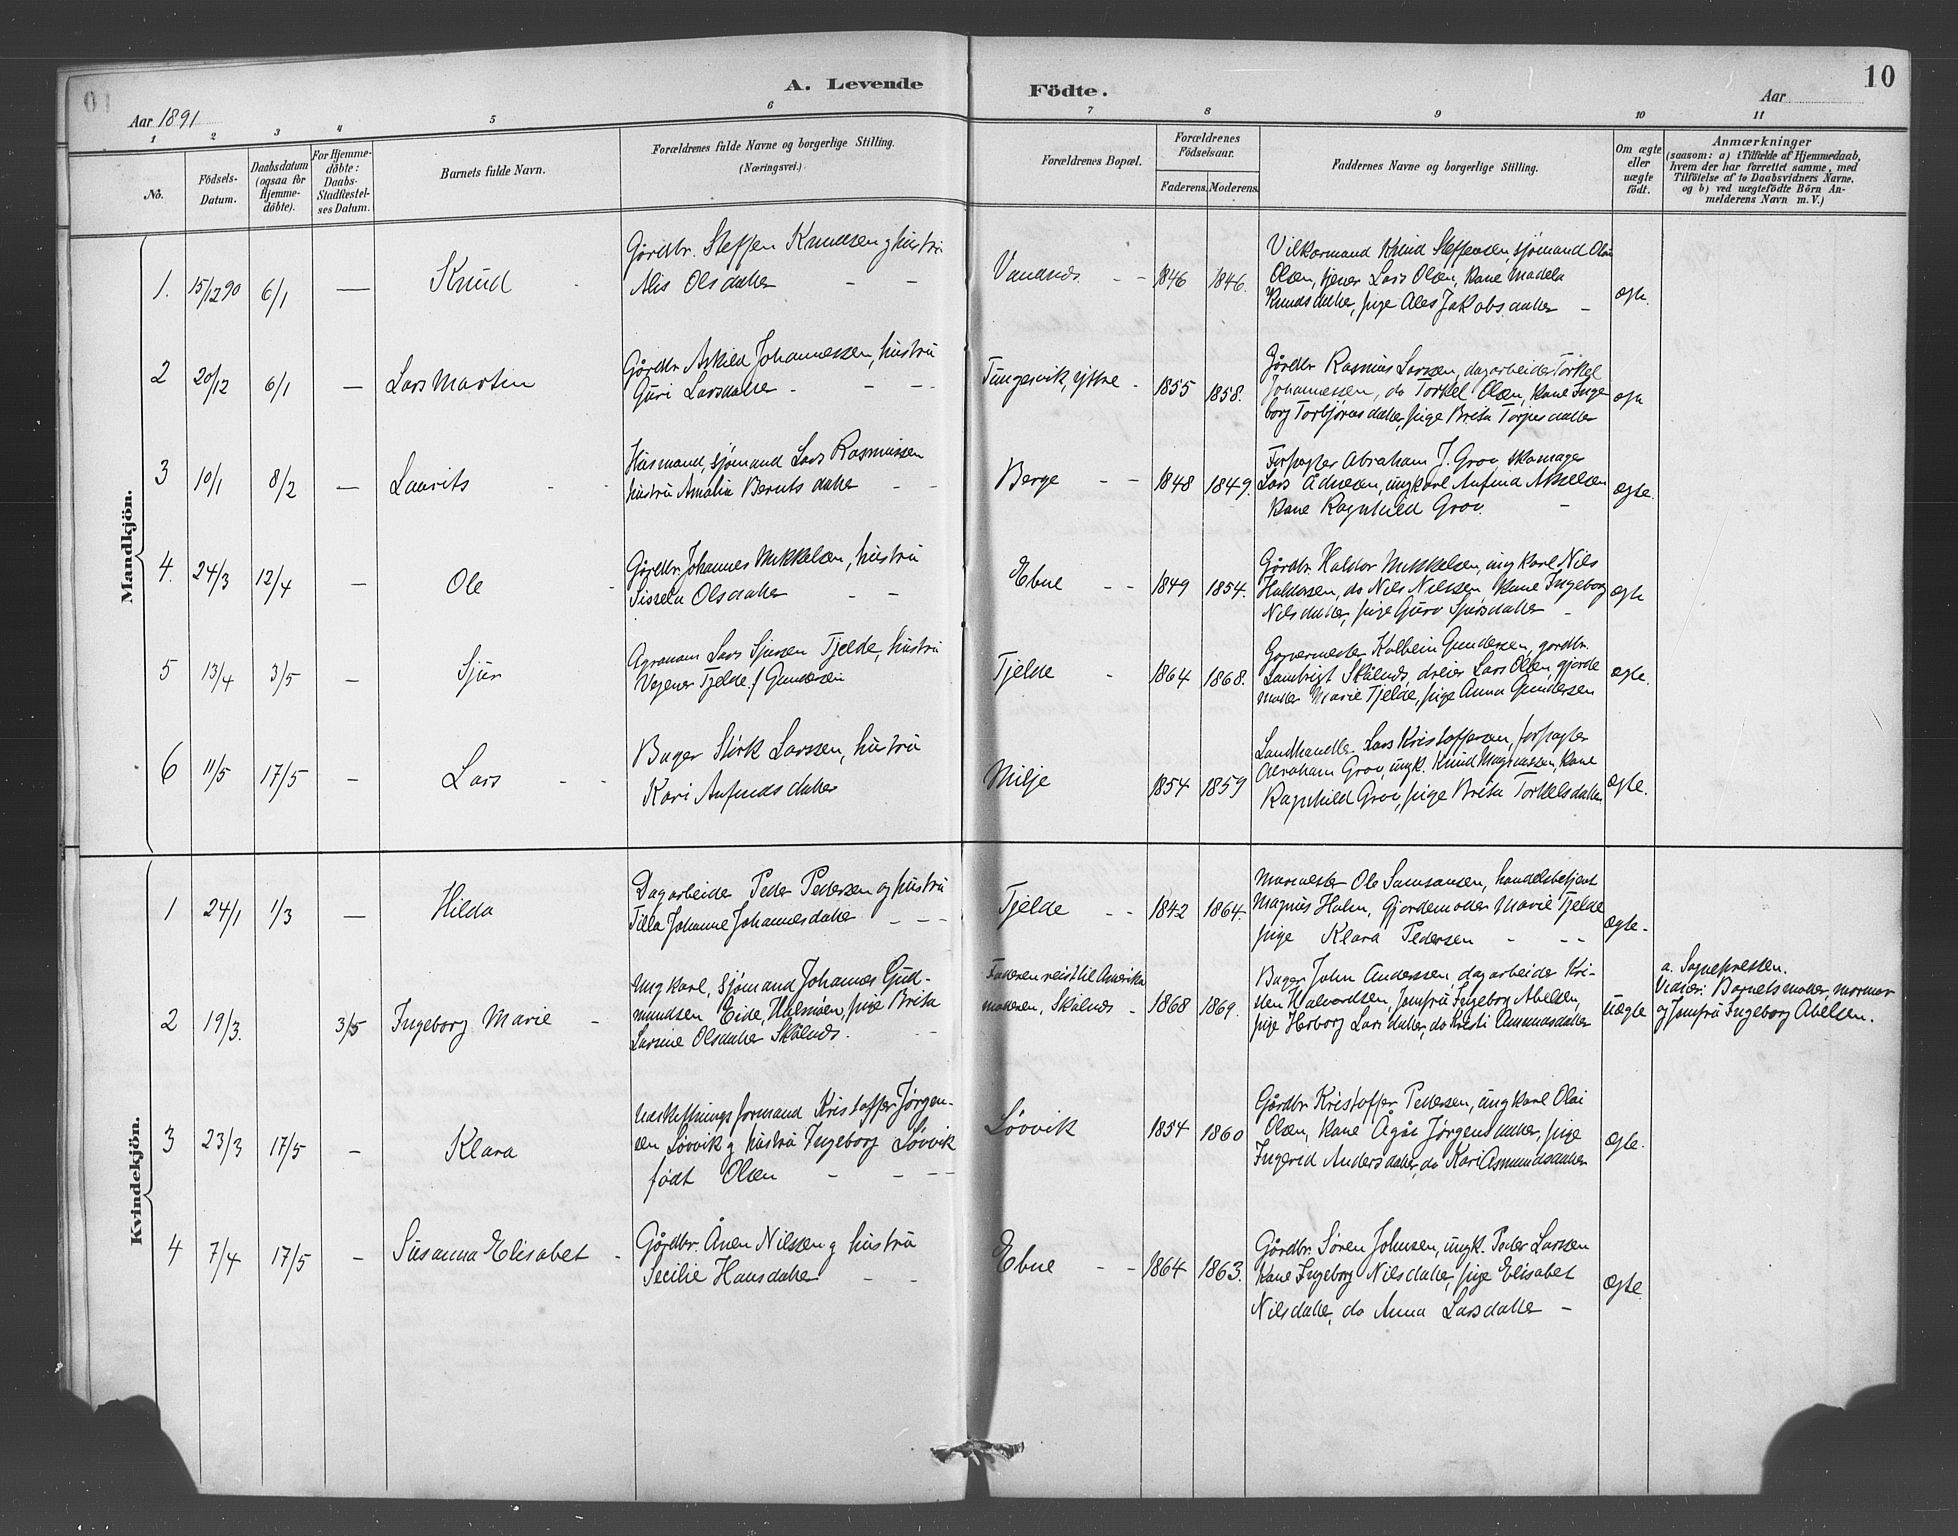 A. Levende Födte.
10
Aar 1891
Aar
1 2 3 4 5 6 7 8 9 10 11
No.
Födsels-Datum.
Daabsdatum (ogsaa for Hjemme-døbte).
For Hjemme-döbte: Daabs-Stadfæstel-ses Datum.
Barnets fulde Navn.
Forældrenes fulde Navne og borgerlige Stilling. (Næringsvei.)
Forældrenes Bopæl.
Forældrenes Födselsaar.
Faderens. Moderens.
Faddernes Navne og borgerlige Stilling.
Om ægte eller uægte födt.
Anmærkninger
(saasom: a) i Tilfælde af Hjemmedaab, hvem der har forrettet samme, med Tilföielse af to Daabsvidners Navne. og b) ved uægtefödte Börn An-melderens Navn m. V.)
Mandkjön.
1. 15/12 90 6/1 — Knud
Gårdbr. Steffen Knudsen og hustru
Alis Olsdatter
1846 1846.
Vilkårmand Knud Steffensen, sjømand Olai
Olsen, tjener Lars Olsen, kone Madela
Knudsdatter, pige Ales Jakobsdatter
ægte.
2 20/12 6/1 — Lars Martin
Gårdbr. Askild Johannessen, hustru
Guri Larsdatter
Tungesvik, ytre 1855 1858.
Gårdbr Rasmus Larssen, dagarbeider Torkel
Johannessen, do Torkel Olsen, kone Inge
borg Torbjørnsdatter, pige Brita Torjusdatter
ægte
3 10/1 8/2 — Laurits
Husmand, sjømand Lars Rasmussen
hustru Amalia Berntsdatter
Berge 1848 1849.
Forpagter Abraham J. Grov, skomager
Lars Ådnesen, ungkarl Anfind Akselsen
kone Ragnhild Grov.
ægte.
4. 24/3 12/4 — Ole
Gårdbr. Johannes Mikkelsen, hustru
Sissela Olsdatter
Ebne 1849 1854.
Gårdbr. Haldor Mikkelsen, ungkarl Nils
Haldorsen, do Nils Nilssen, kone Ingeborg
Nilsdatter, pige Guro Sjursdatter
ægte
5 13/4 3/5 — Sjur
Agronom Lars Sjursen Tjelde, hustru
Tjelde f. Gundersen
Tjelde 1864 1868.
Garvermester Kolbein Gundersen, gårdbr.
Lambrigt Skålnes, dreier Lars Olsen, gjorde
moder Marie Tjelde, pige Anna Gundersen
ægte.
6 11/5 17/5 — Lars
Bager Størk Larssen, hustru
Kari Anfindsdatter
Milje 1854 1859
Landhandler Lars Kristoffersen, forpagter
Abraham Grov, ungk. Knud Magnussen, kone
Ragnhild Grov, pige Brita Torkelsdatter
ægte.
Kvindekjön.
1 24/1 1/3 — Hilda
Dagarbeider Peder Pedersen og hustru
Tilla Johanne Johannesdatter
Tjelde 1842 1864.
Ole Samsonsen, handelsbetjent
Magnus Halm, gjordemoder Marie Tjelde
pige Klara Pedersen
ægte.
2 19/3. 3/5 Ingeborg Marie
Ungkarl, sjømand Johannes Gud-
mundsen Eide, Halsnøen, pige Brita
Larine Olsdatter Skålnes.
Faderen reist til Amerika
moderen, Skålnes 1868 1869.
Bager John Anderssen, dagarbeider Kri-
sten Halvordsen, Jomfru Ingeborg Abelsen,
pige Herborg Larsdatter, do Kristi Åmundsdatter
uægte
a. Sognepresten.
Vidner: Barnets moder, mormor
og Jomfru Ingeborg Abelsen.
3 23/3 17/5 — Klara
Udskiftningsformand Kristoffer Jørgen-
sen Løvvik og hustru Ingeborg Løvvik
født Olsen
Løvvik 1854 1860
Gårdbr Kristoffer Pedersen, ungkarl Olai
Olsen, kone Ågåt Jørgensdatter, pige
Ingerid Andersdatter, do Kari Asmundsdatter
ægte.
4 7/4 17/5 — Susanna Elisabet
Gårdbr. Ånen Nilssen og hustru
Secilie Hansdatter
Ebne 1864 1863.
Gårdbr. Søren Johnsen, ungk. Peder Larssen
kone Ingeborg Nilsdatter, pige Elisabet
Nilsdatter, do Anna Larsdatter
ægte.